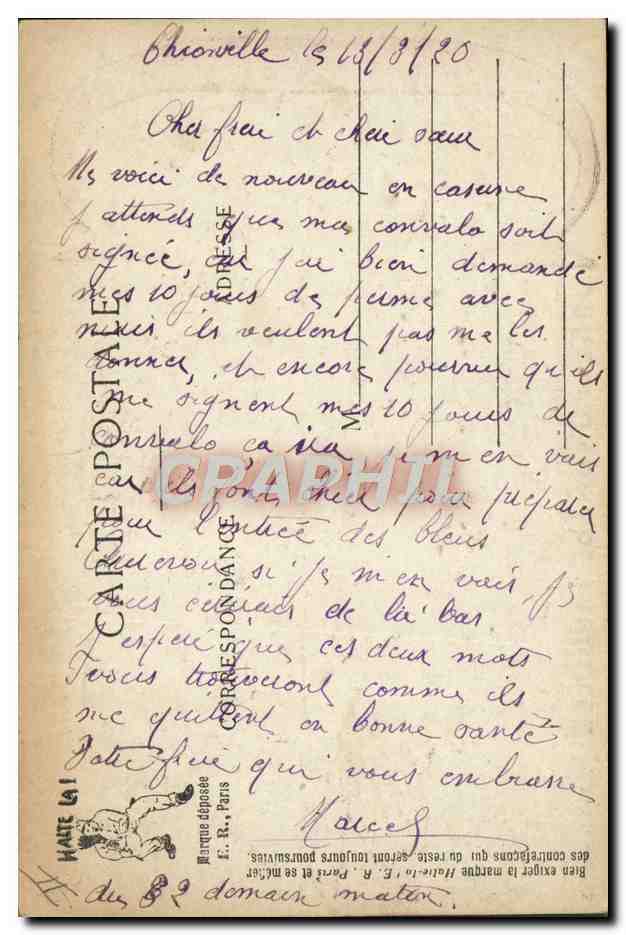 Thionville le 13/3/20
Cher frere et chere sœur
Me voici de nouveau en caserne
j attends que ma convalo soit
signée, car j ai bien demandé
mes 10 jours de perme avec
mais ils veulent pas me les
donner, et encore pourvu qu ils
me signent mes 10 jours de
convalo ça ira je m en vais
car ils font chier pour préparer
pour l entrée des bleus
si je m en vais je
vous ecrirais de la bas
J espere que ces deux mots
vous trouveront comme ils
me quittent en bonne santé
Votre frere qui vous embrasse
Marcel
du 2 demain matin.
CARTE POSTALE
CORRESPONDANCE
ADRESSE
M
HALTE LA !
Marque déposée
E. R., Paris
Bien exiger la marque Halte-la ! E. R., Paris et se méfier
des contrefaçons qui du reste seront toujours poursuivies.
CPAPHIL